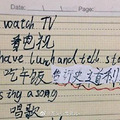 watch TV
看电视
have lunch and tell st
吃午饭
sing a song
唱歌